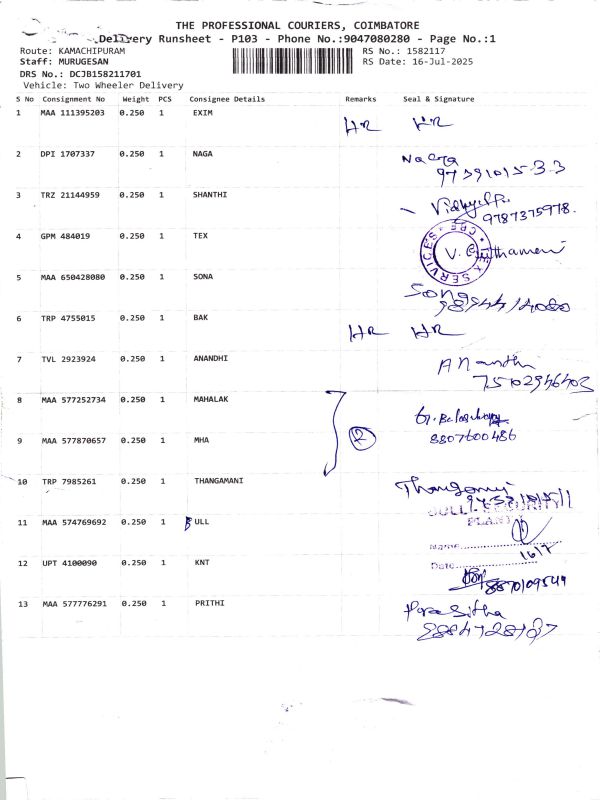 THE PROFESSIONAL COURIERS, COIMBATORE
Delivery Runsheet - P103 - Phone No.:9047080280 - Page No.:1
Route: KAMACHIPURAM RS No.: 1582117
Staff: MURUGESAN RS Date: 16-Jul-2025
DRS No.: DCJB158211701
Vehicle: Two Wheeler Delivery
S No Consignment No Weight PCS Consignee Details Remarks Seal & Signature
1 MAA 111395203 0.250 1 EXIM
2 DPI 1707337 0.250 1 NAGA Naga
3 TRZ 21144959 0.250 1 SHANTHI
9787375978.
4 GPM 484019 0.250 1 TEX
SERVICES
5 MAA 650428080 0.250 1 SONA Sona
6 TRP 4755015 0.250 1 BAK
7 TVL 2923924 0.250 1 ANANDHI Ananthi
75102946403
8 MAA 577252734 0.250 1 MAHALAK
8807600486
9 MAA 577870657 0.250 1 MHA 2
10 TRP 7985261 0.250 1 THANGAMANI Thangamani
BULL SECURITY
PLANT
11 MAA 574769692 0.250 1 BULL
Name
16/7
Date
12 UPT 4100090 0.250 1 KNT
13 MAA 577776291 0.250 1 PRITHI